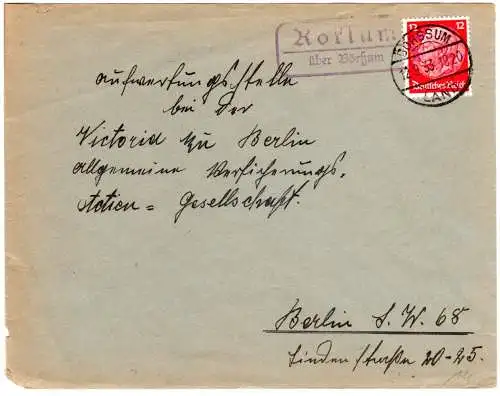 12 12
Deutsches Reich
BÖRSSUM
LAND
über Börßum
Aufwertungsstelle
bei der
Victoria zu Berlin
Allgemeine Versicherungs-
Actien = Gesellschaft.
Berlin S.W. 68
Lindenstraße 20-25.